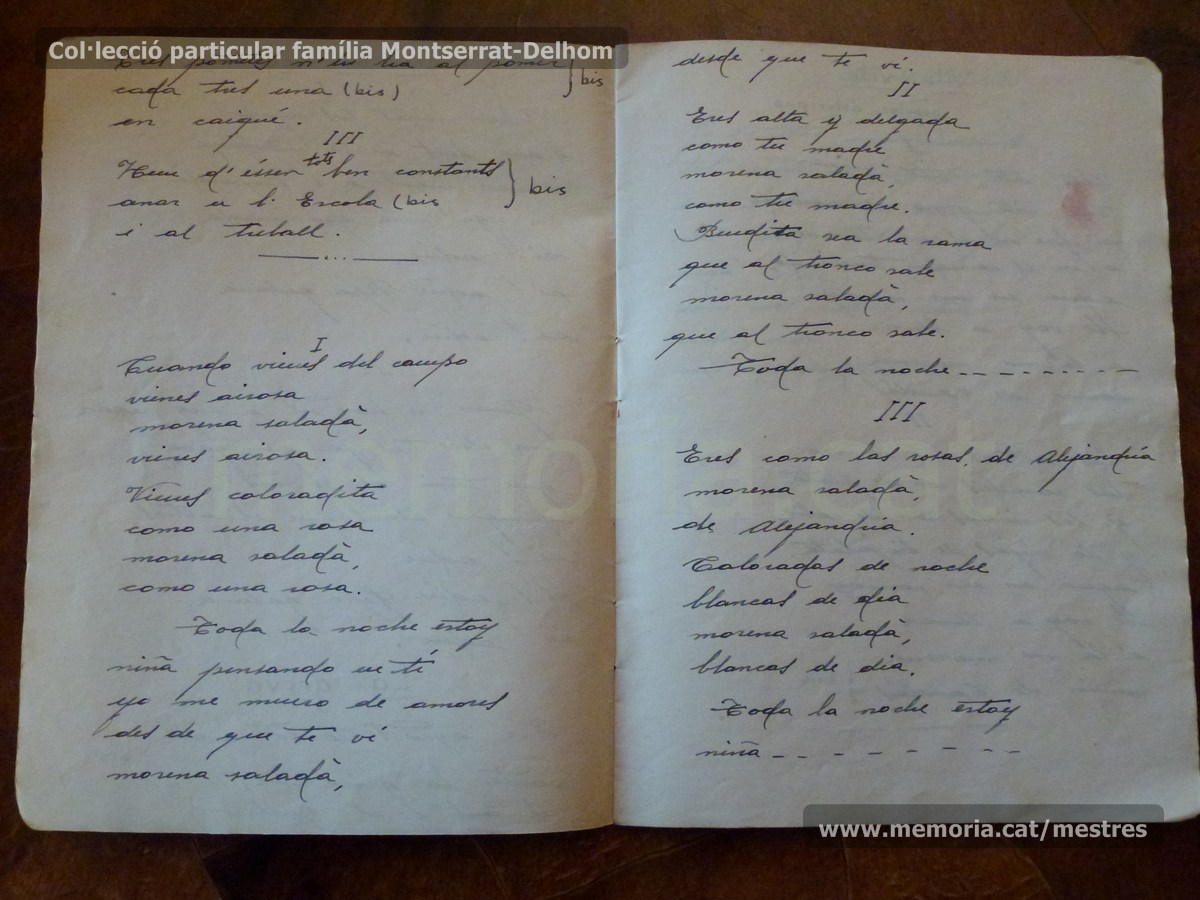 Col·lecció particular família Montserrat-Delhom
Tres pomes n'hi ha al pomer } bis
cada tres una (bis)
en caigué.
III
Hem d'ésser tots ben constants } bis
anar a l'Escola (bis
i al treball.
I
Cuando vienes del campo
vienes airosa
morena saladà,
vienes airosa.
Vienes coloradita
como una rosa
morena saladà,
como una rosa.
Toda la noche estoy
niña pensando en tí
yo me muero de amores
des de que te ví
morena saladà,
desde que te ví.
II
Eres alta y delgada
como tu madre
morena saladà,
como tu madre.
Bendita sea la rama
que al tronco sale
morena saladà,
que al tronco sale.
Toda la noche - - - - - - - - -
III
Eres como las rosas, de Alejandría
morena saladà,
de Alejandría.
Coloradas de noche
blancas de dia
morena saladà,
blancas de dia.
Toda la noche estoy
niña - - - - - - - -
memoria.cat
www.memoria.cat/mestres